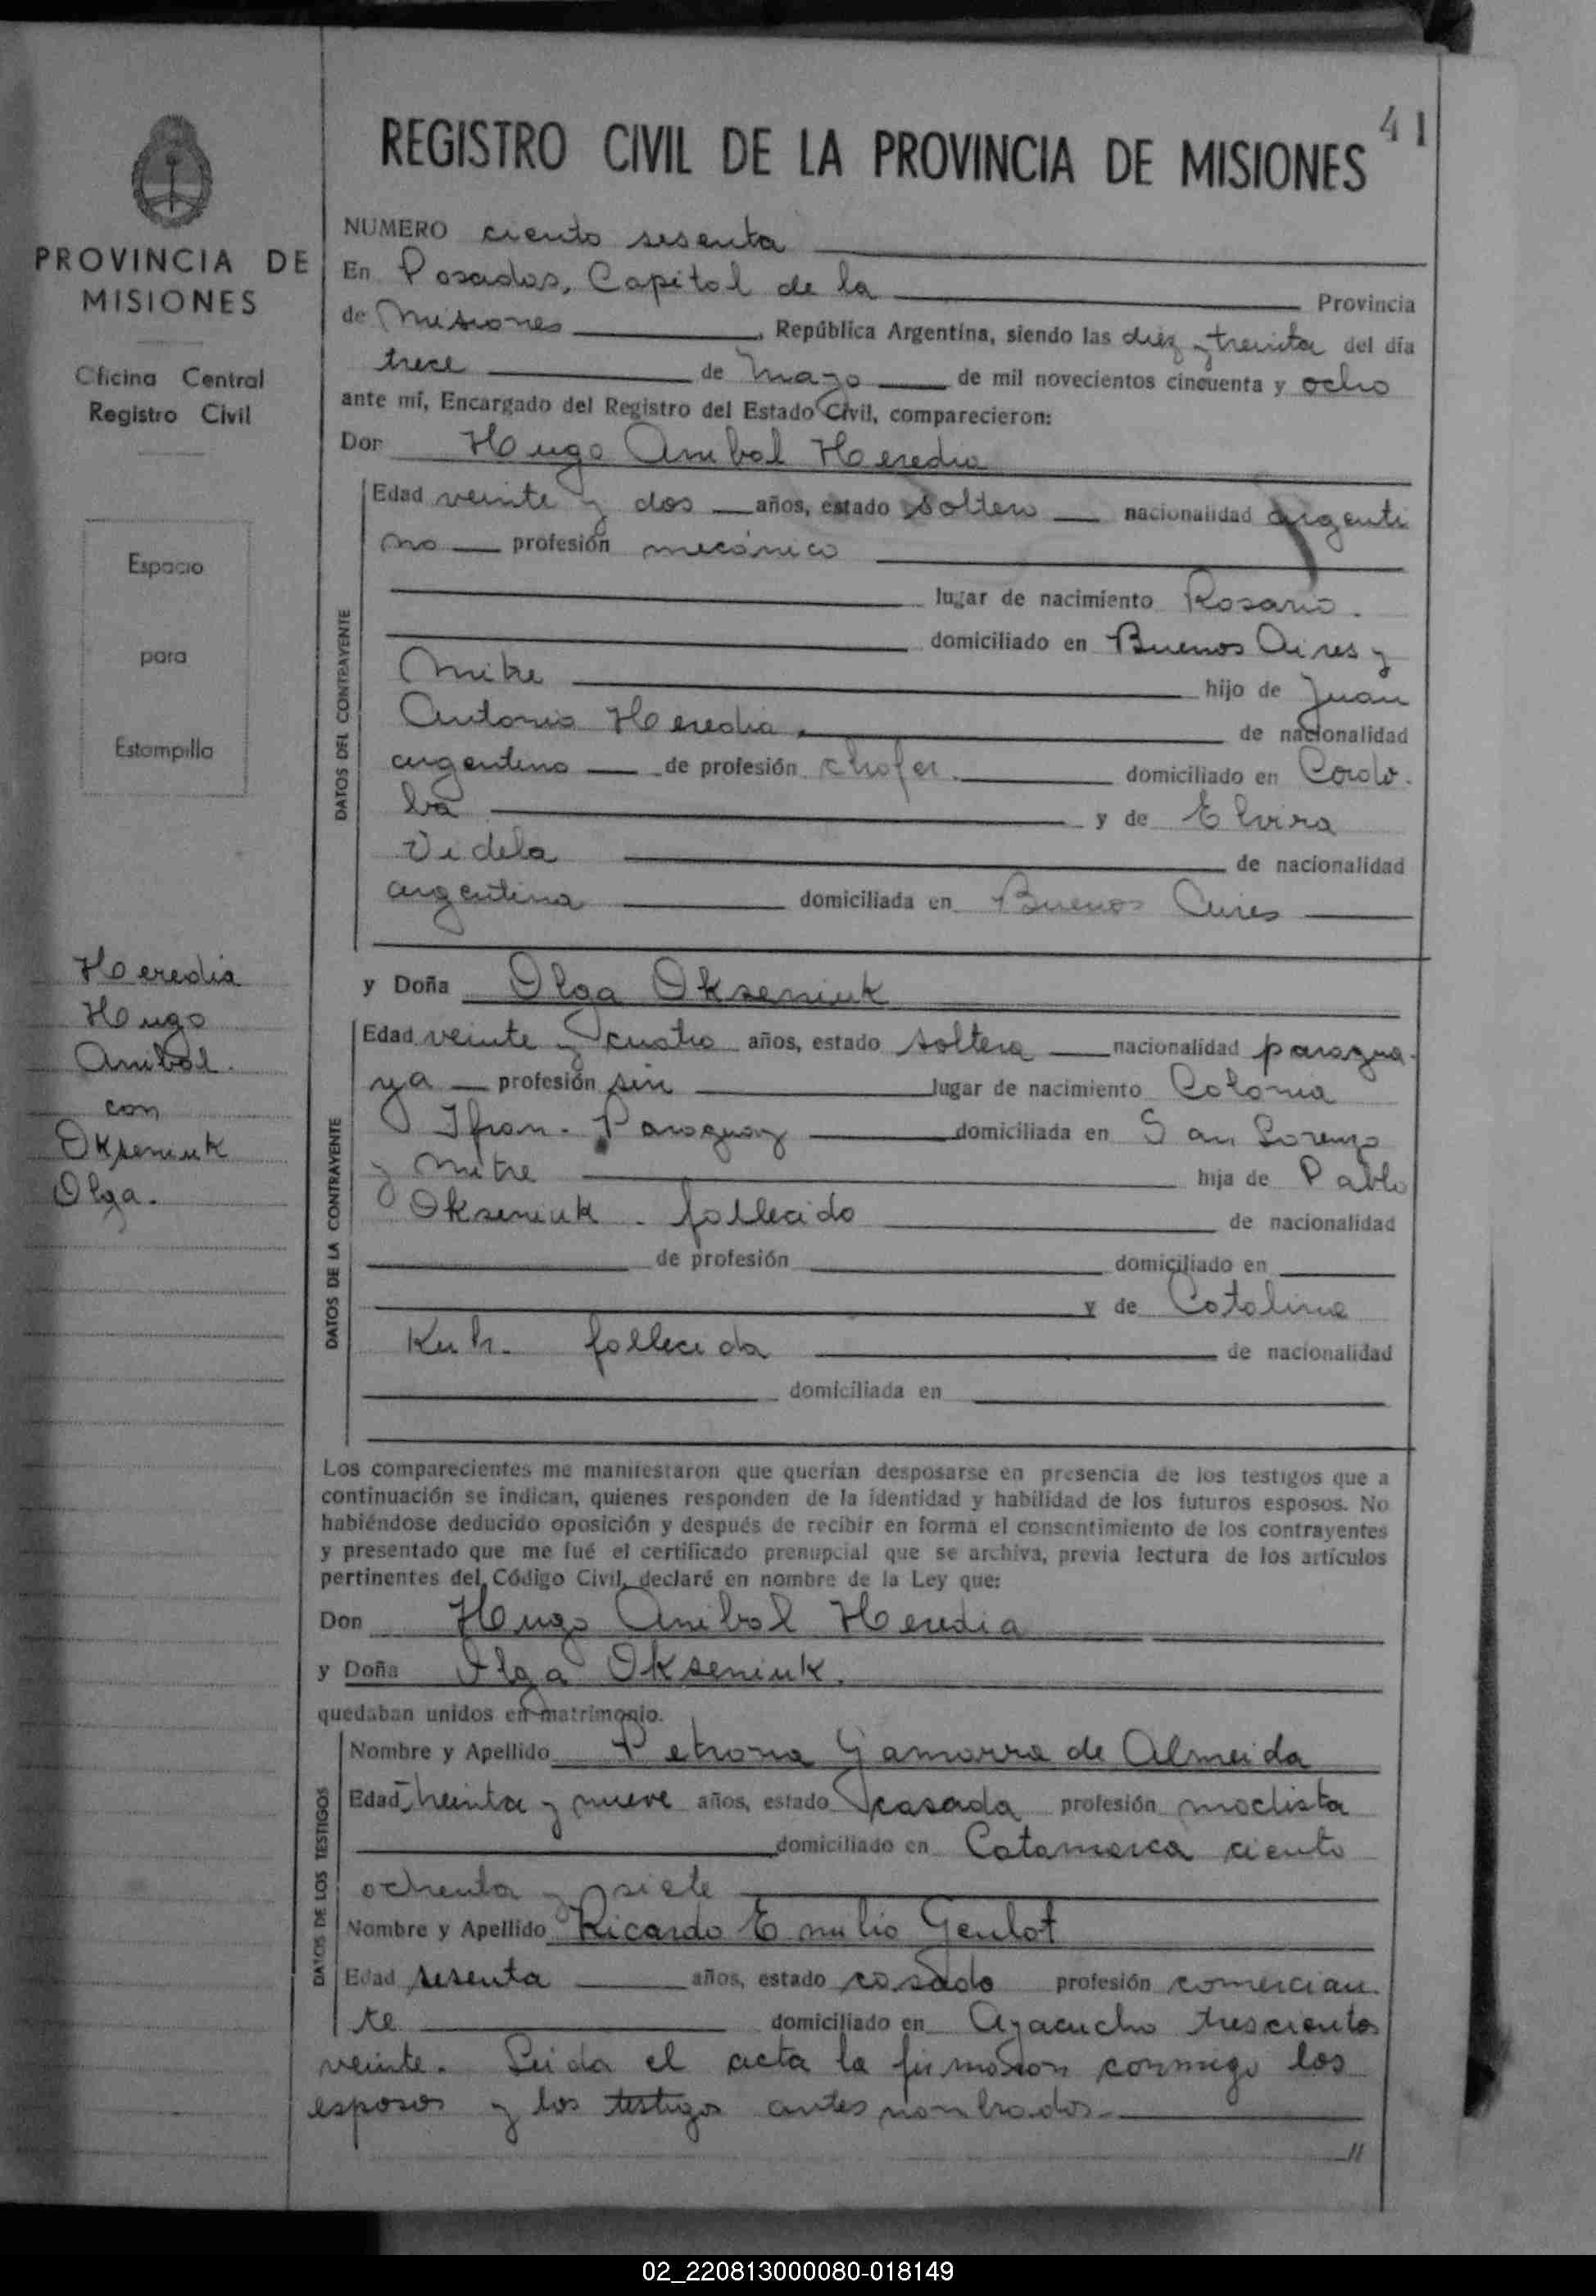 41
REGISTRO CIVIL DE LA PROVINCIA DE MISIONES
PROVINCIA DE
MISIONES
Oficina Central
Registro Civil
Espacio
para
Estampilla
Heredia
Hugo
Anibal.
con
Okseniuk
Olga.
NUMERO ciento sesenta
En Posadas, Capital de la Provincia
de Misiones, República Argentina, siendo las diez y treinta del día
trece de Mayo de mil novecientos cincuenta y ocho
ante mí, Encargado del Registro del Estado Civil, comparecieron:
Don Hugo Anibal Heredia
DATOS DEL CONTRAYENTE
Edad veinte y dos años, estado soltero nacionalidad argenti
no profesión mecánico
lugar de nacimiento Rosario.
domiciliado en Buenos Aires y
Mitre hijo de Juan
Antonio Heredia, de nacionalidad
argentino de profesión chofer. domiciliado en Cordo-
ba y de Elvira
Videla de nacionalidad
argentina domiciliada en Buenos Aires
y Doña Olga Okseniuk
DATOS DE LA CONTRAYENTE
Edad veinte y cuatro años, estado soltera nacionalidad paragua-
ya profesión sin lugar de nacimiento Colonia
Ifran. Paraguay domiciliada en San Lorenzo
y Mitre hija de Pablo
Okseniuk. fallecido de nacionalidad
de profesión domiciliado en
y de Catalina
Kuh. fallecida de nacionalidad
domiciliada en
Los comparecientes me manifestaron que querían desposarse en presencia de los testigos que a
continuación se indican, quienes responden de la identidad y habilidad de los futuros esposos. No
habiéndose deducido oposición y después de recibir en forma el consentimiento de los contrayentes
y presentado que me fué el certificado prenupcial que se archiva, previa lectura de los artículos
pertinentes del Código Civil, declaré en nombre de la Ley que:
Don Hugo Anibal Heredia
y Doña Olga Okseniuk.
quedaban unidos en matrimonio.
DATOS DE LOS TESTIGOS
Nombre y Apellido Petrona Gamarra de Almeida
Edad treinta y nueve años, estado casada profesión modista
domiciliado en Catamarca ciento
ochenta y siete
Nombre y Apellido Ricardo Emilio Genlot
Edad sesenta años, estado casado profesión comercian-
te domiciliado en Ayacucho trescientos
veinte. Leida el acta la firmaron conmigo los
esposos y los testigos antes nombrados.
//
02_220813000080-018149